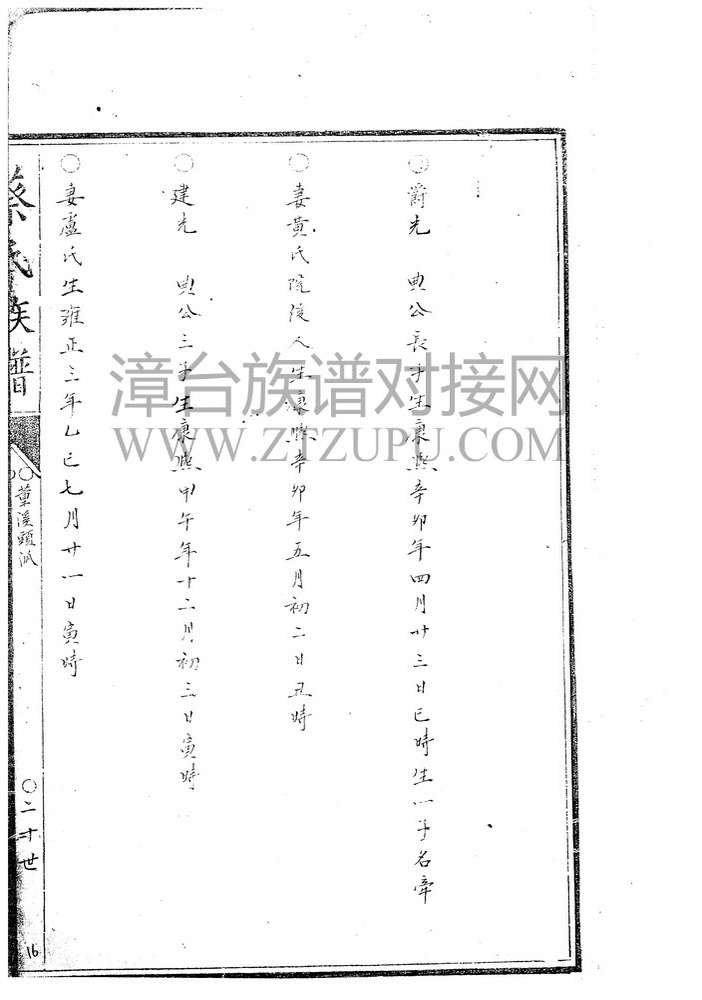 ○爵光 典公長子生康熙辛卯年四月廿三日巳時生一子名牽
○妻黃氏院後人生康熙辛卯年五月初二日丑時
○建光 典公三子生康熙甲午年十二月初三日寅時
○妻盧氏生雍正三年乙巳七月廿一日寅時
蔡氏族譜
○二十世
16
漳台族谱对接网
WWW.ZTZUPU.COM